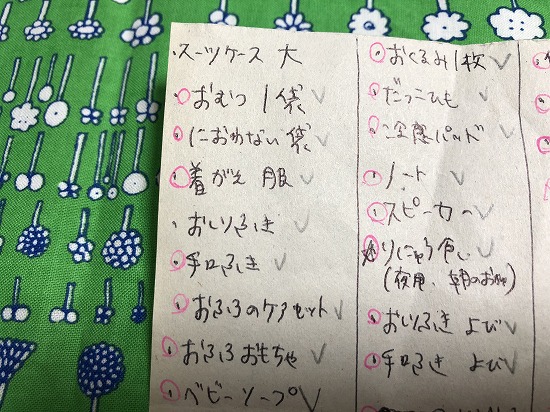 スーツケース 大
・おむつ 1袋 ✓
・におわない袋 ✓
・着がえ 服 ✓
・おしりふき ✓
・手口ふき ✓
・おふろのケアセット ✓
・おふろおもちゃ ✓
・ベビーソープ ✓
・おくるみ1枚 ✓
・だっこひも ✓
・冷感パッド ✓
・ノート ✓
・スピーカー ✓
りにゅう食
(夜用、朝の
・おしりふき よび ✓
・手口ふき よび ✓